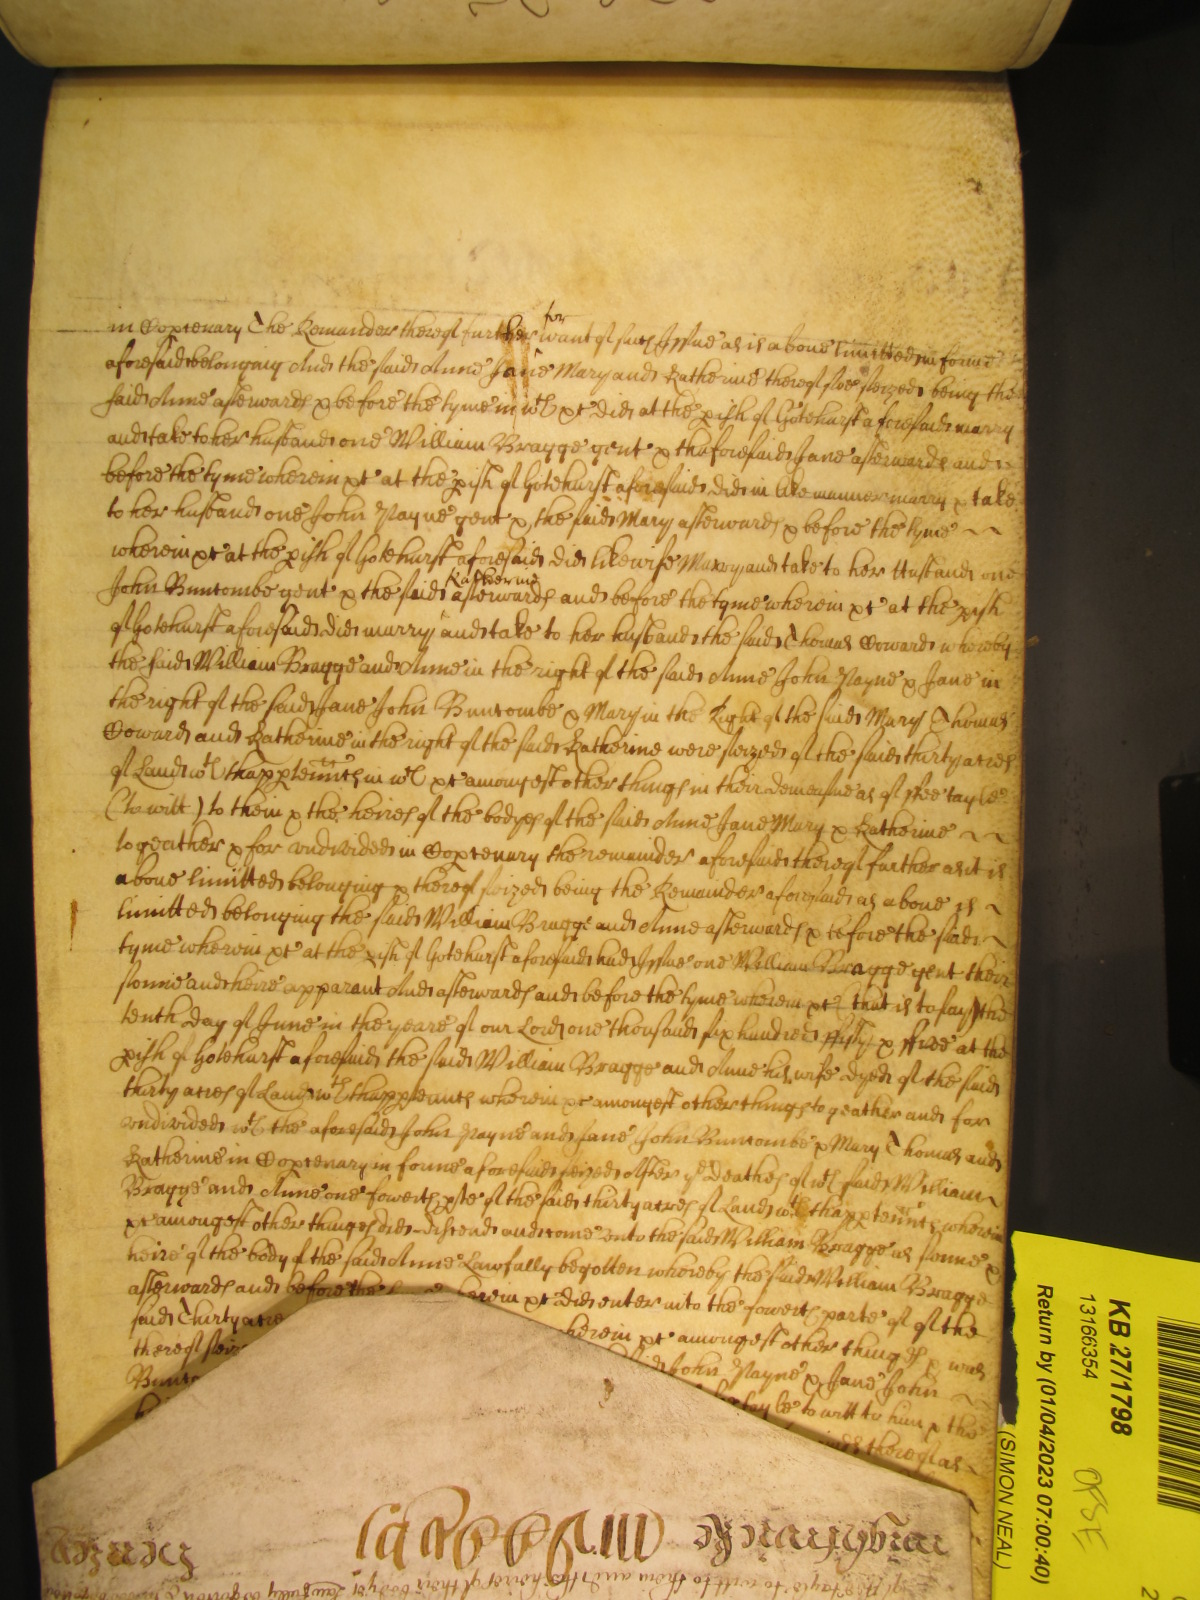 in Coptenary The Remander thereof further for want of such Issue as is above limitted in forme
aforesaid belonging And the said Anne Jane Mary and Katherine thereof soe seized being the
said Anne afterwards & before the tyme in wch &c did at the pish of Gotehurst aforesaid marry
and take to her husband one William Bragge gent & thaforesaid Jane afterwards and
before the tyme wherein &c at the pish of Gotehurst aforesaid did in like manner marry & take
to her husband one John Payne gent & the said Mary afterwards & before the tyme
wherein &c at the pish of Gotehurst aforesaid did likewise Marry and take to her Husband one
John Buncombe gent & the said Katherine afterwards and before the tyme wherein &c at the pish
of Gotehurst aforesaid did marry and take to her husband the said Thomas Coward whereby
the said William Bragge and Anne in the right of the said Anne John Payne & Jane in
the right of the said Jane John Buncombe & Mary in the Right of the said Mary Thomas
Coward and Katherine in the right of the said Katherine were seized of the said thirty acres
of Land wth thapptenncs in wch &c amongest other things in their demeasne as of ffee tayle
(to witt) to them & the heires of the bodyes of the said Anne Jane Mary & Katherine
togeather & for undivided in Coptenary the remainder aforesaid thereof further as it is
above limitted belonging & thereof seized being the Remainder aforesaid as above is
limitted belonging the said William Bragge and Anne afterwards & before the said
tyme wherein &c at the pish of Gotehurst aforesaid had Issue one William Bragge gent their
sonne and heire apparant And afterwards and before the tyme wherein &c (that is to say) the
tenth day of June in the yeare of our Lord one thousand six hundred ffifty & ffive at the
pish of Gotehurst aforesaid the said William Bragge and Anne his wife dyed of the said
thirty acres of Land wth thapptenncs wherein &c amongest other things togeather and for
undivided wth the aforesaid John Payne and Jane John Buncombe & Mary Thomas and
Katherine in Coptenary in forme aforesaid seized After ye Deathes of wch said William
Bragge and Anne one fowerth pte of the said thirty acres of Land wth thapptenncs wherein
&c amongest other things did descend and come unto the said William Bragge as sonne &
heire of the body of the said Anne Lawfully begotten whereby the said William Bragge
afterwards and before the wherein &c did enter into the fowerth parte of of the
said Thirty acre wherein &c amongest other things & was
thereof seiz said John Payne & Jane John
Bunco tayle to witt to him & the
thereof as
KB 27/1798
13166354
Return by (01/04/2023 07:00:40)
(SIMON NEAL)